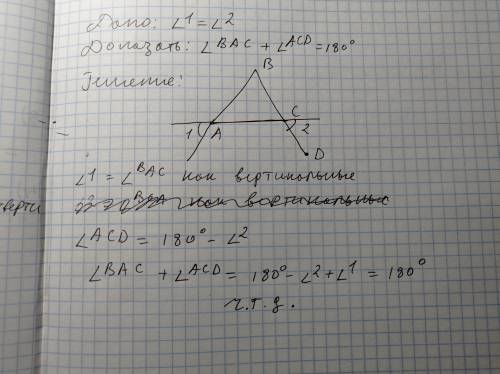 Дано: ∠1 = ∠2
Доказать: ∠BAC + ∠ACD = 180°
Решение:
B
C
1 A 2
D
∠1 = ∠BAC как вертикальные
∠ACD = 180° - ∠2
∠BAC + ∠ACD = 180° - ∠2 + ∠1 = 180°
ч.т.д.